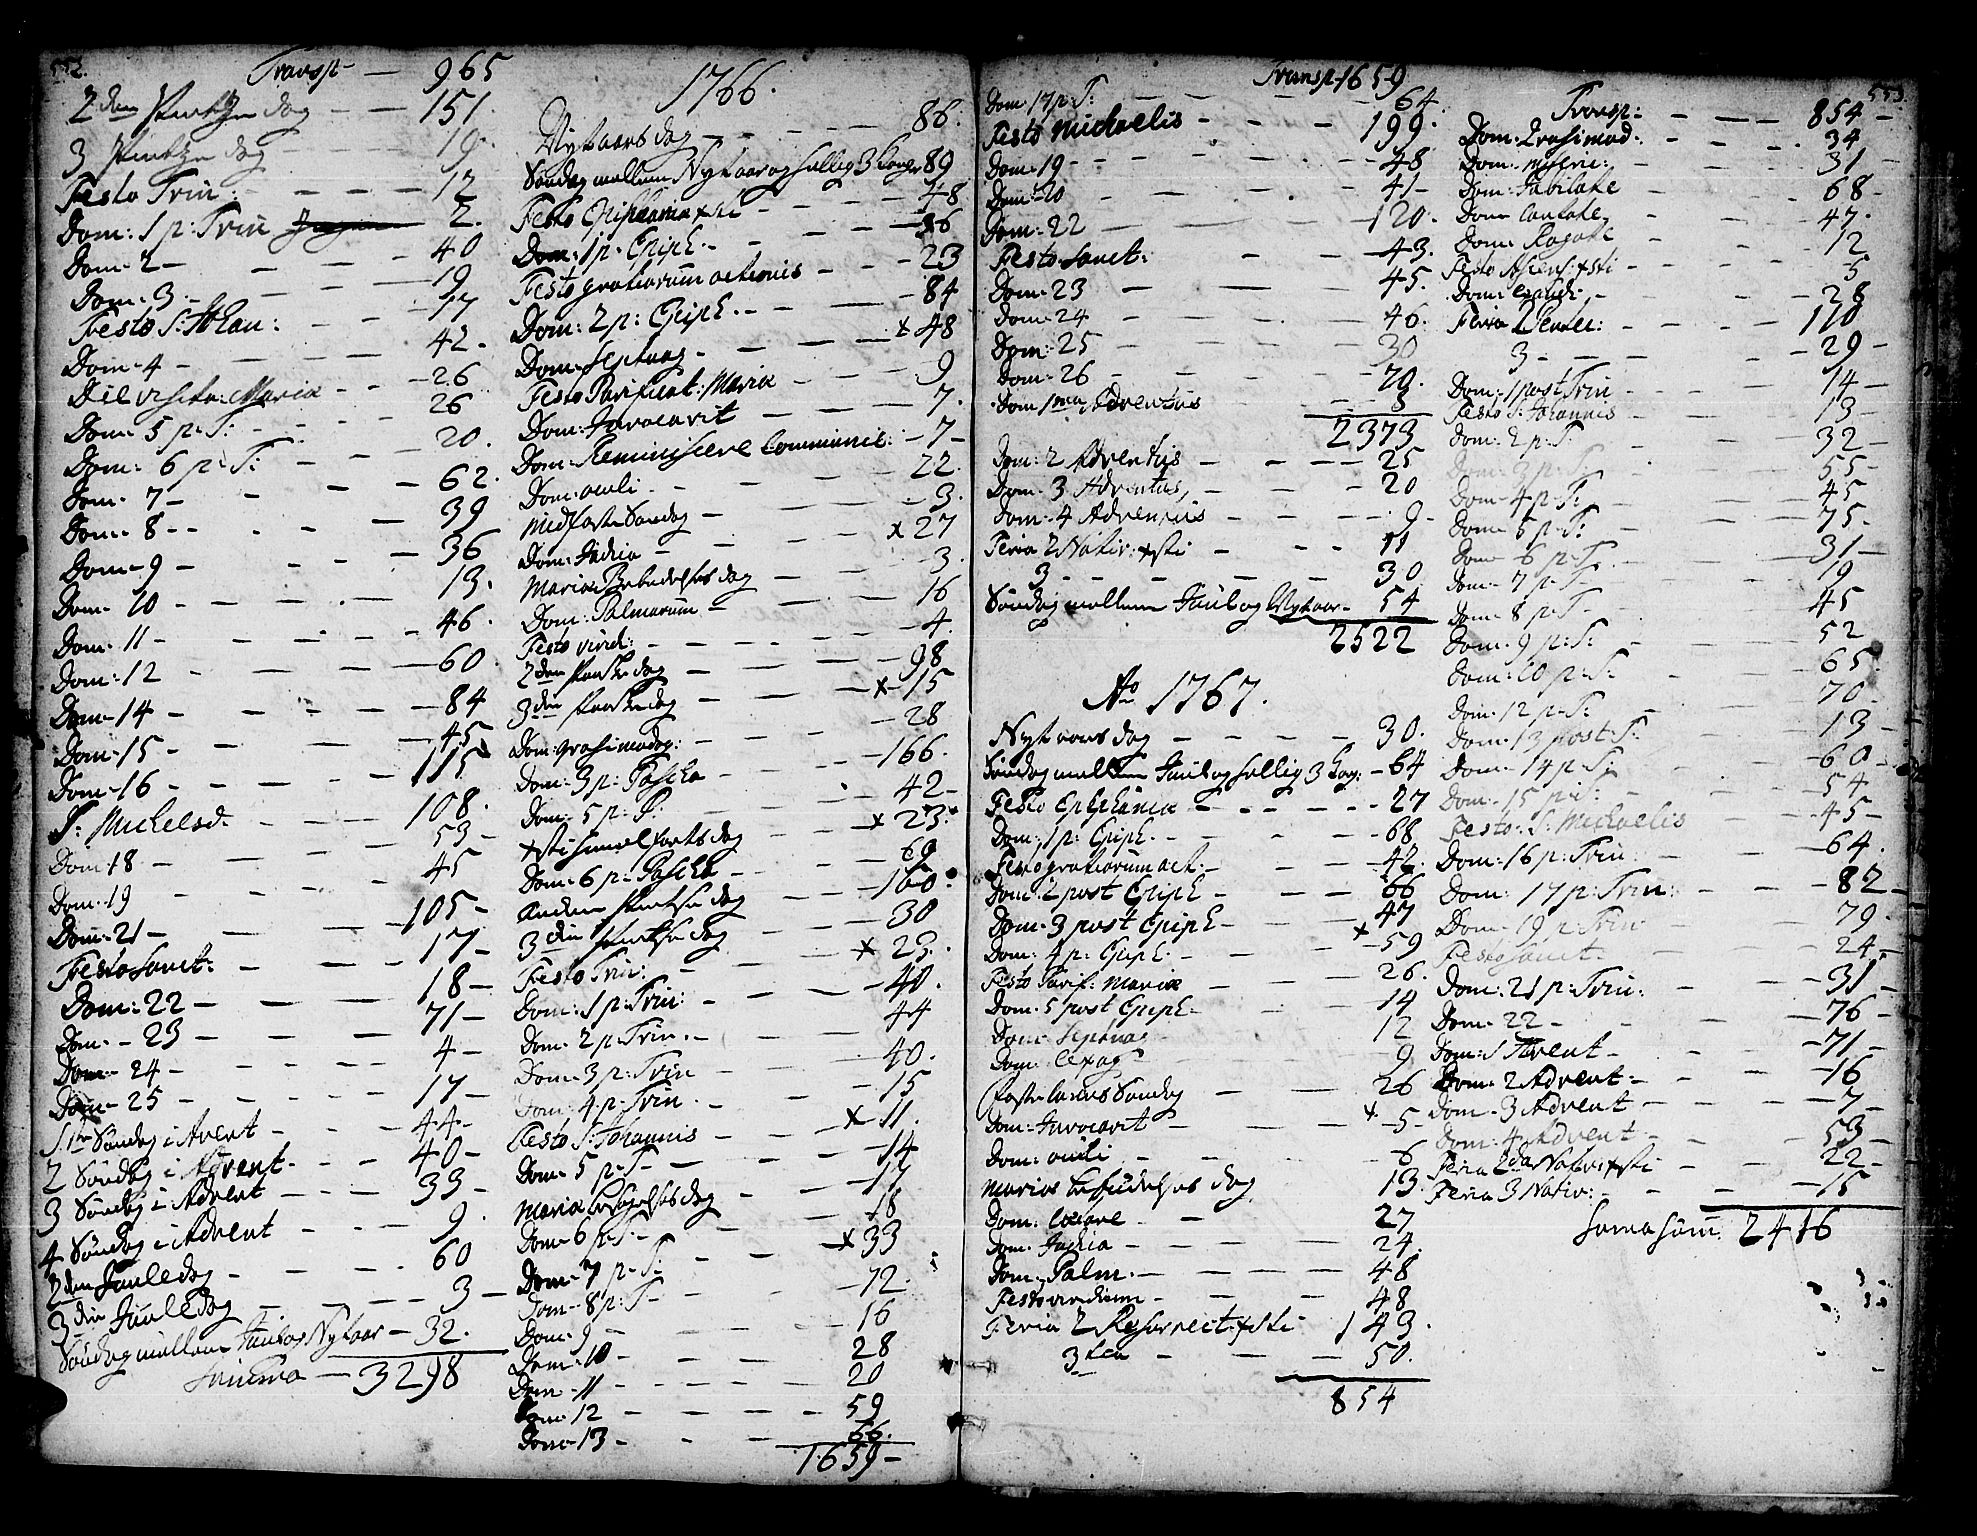 552.
Transp — 965
2den Pintze dag — 151.
3 Pintze dag — 19.
Festo Trin: — 12
Dom: 1 p: Trin — 2.
Dom: 2 — 40
Dom: 3 — 19
Festo S: Johan: — 17
Dom: 4 — 42.
Die visita: Maria — 26
Dom: 5 p: T: — 26
Dom: 6 p: T: — 20.
Dom: 7 — 62.
Dom: 8 — 39
Dom: 9 — 36
Dom: 10 — 13.
Dom: 11 — 46.
Dom: 12 — 60.
Dom: 14 — 84
Dom: 15 — 45
Dom: 16 — 115
S: Michelsd. — 108.
Dom: 18 — 53
Dom: 19 — 45
Dom: 21 — 105
Festo Sanct: — 17
Dom: 22 — 18
Dom: 23 — 71
Dom: 24 — 4
Dom: 25 — 17
1te Søndag i Avent — 44
2 Søndag i Advent — 40
3 Søndag i Advent — 33
4 Søndag i Advent — 9.
2den Juuledag — 60
3die Juuledag — 3
Søndag mellem Juul og Nytaar — 32.
Summa — 3298
1766.
Nytaars dag — 86.
Søndag mellem Nytaar og hellig 3 Konge 89
Festo Epiphania xsti — 48
Dom: 1 p: Epiph: — 86
Festo gratiarum actionis — 23
Dom: 2 p: Epiph. — 84
Dom: Septuag — x 48
Festo Purificat: Maria — 9
Dom: Invocavit — 7.
Dom: Reminiscere Communic: — 7
Dom: oculi — 22.
Midfaste Søndag — 3.
Dom: Judica — x 27
Maria Bebudelses dag — 3.
Dom: Palmarum — 16
Festo virid: — 4.
2den Paaske dag — 98
3den Paaske dag — x 15
Dom: qvasimodog: — 28
Dom: 3 p: Pascha — 166.
Dom: 5 p: P. — 42
xsti himmelfarts dag — x 23.
Dom: 6 p: Pascha — 69
Anden Pintse dag — 160.
3die Pintse dag — 30
Festo Trin: — x 23.
Dom: 1 p: Trin: — 40.
Dom: 2 p: Trin. — 44
Dom: 3 p: Trin — 40.
Dom: 4 p: Trin. — 15
Festo S: Johannis — x 11.
Dom: 5 p: T — 14
Maria besøgelses dag — 17
Dom: 6 p: T — 18
Dom: 7 p: T — x 33
Dom: 8 p: T — 12.
Dom: 9 — 16
Dom: 10 — 28
Dom: 11 — 20
Dom: 12 — 59
Dom: 13 — 66.
1659
553.
Transp: 1659
Dom: 17 p: T: — 64.
Festo Michaelis — 199.
Dom: 19 — 48
Dom: 20 — 41
Dom: 22 — 120.
Festo Sanct: — 43.
Dom: 23 — 45.
Dom: 24 — 46.
Dom: 25 — 30
Dom: 26 — 70.
Dom 1ma Adventus — 8
2373
Dom: 2 Adventus — 25
Dom: 3 Adventus — 20
Dom: 4 Adventus — 9
Feria 2 Nativ: xsti — 11
3 — 30
Søndag mellem Juul og Nytaar — 54
2522
Ao 1767.
Nytaars dag — 30.
Søndag mellem Juul og hellig 3 Kog: — 64
Festo Epiphania — 27
Dom: 1 p: Epiph. — 68
Festo gratiarum act: — 42.
Dom: 2 post Epiph — 66
Dom: 3 post Epiph — 47
Dom: 4 p: Epiph — x 59
Festo Purif: Maria — 26.
Dom: 5 post Epiph. — 14
Dom: Septuag — 12
Dom: Sexag — 9
Fastelavns Søndag — 26
Dom: Invocavit — x 5
Dom: oculi — 6
Marias bebudelses dag — 13.
Dom: Lætare — 27
Dom: Judica — 24.
Dom: Palm: — 48
Festo viridium — 48
Feria 2 Resurrect: xsti — 143.
3tia — 50.
854
Transp: — 854
Dom: Qvasimod: — 34
Dom: Miseric: — 31
Dom: Jubilate — 68
Dom: Cantate — 47.
Dom: Rogate — 12
Festo Ascens: xsti — 5
Dom: Exaudi — 28
Feria 2 Pentec: — 110
3 — 29
Dom: 1 post Trin — 14
Festo S: Johannis — 13
Dom: 2 p: T: — 32
Dom: 3 p: T: — 55
Dom: 4 p: T: — 45
Dom: 5 p: T: — 75.
Dom: 6 p: T. — 31
Dom: 7 p: T — 19
Dom: 8 p: T — 45
Dom: 9 p: T: — 52
Dom: 10 p: T: — 65.
Dom: 12 p: T: — 70
Dom: 13 post T: — 13
Dom: 14 p: T: — 60
Dom: 15 p: T: — 54
Festo: S: Michaelis — 45
Dom: 16 p: Trin: — 64.
Dom: 17 p: Trin: — 82
Dom: 19 p: Trin — 79.
Festo Sanct: — 24
Dom: 21 p: Trin: — 31
Dom: 22 — 76
Dom: 1 Advent — 71
Dom: 2 Advent — 16
Dom: 3 Advent — 7
Dom: 4 Advent — 53
Feria 2da Nativ: xsti — 22
Feria 3 Nativ: — 15
Suma Sum 2416